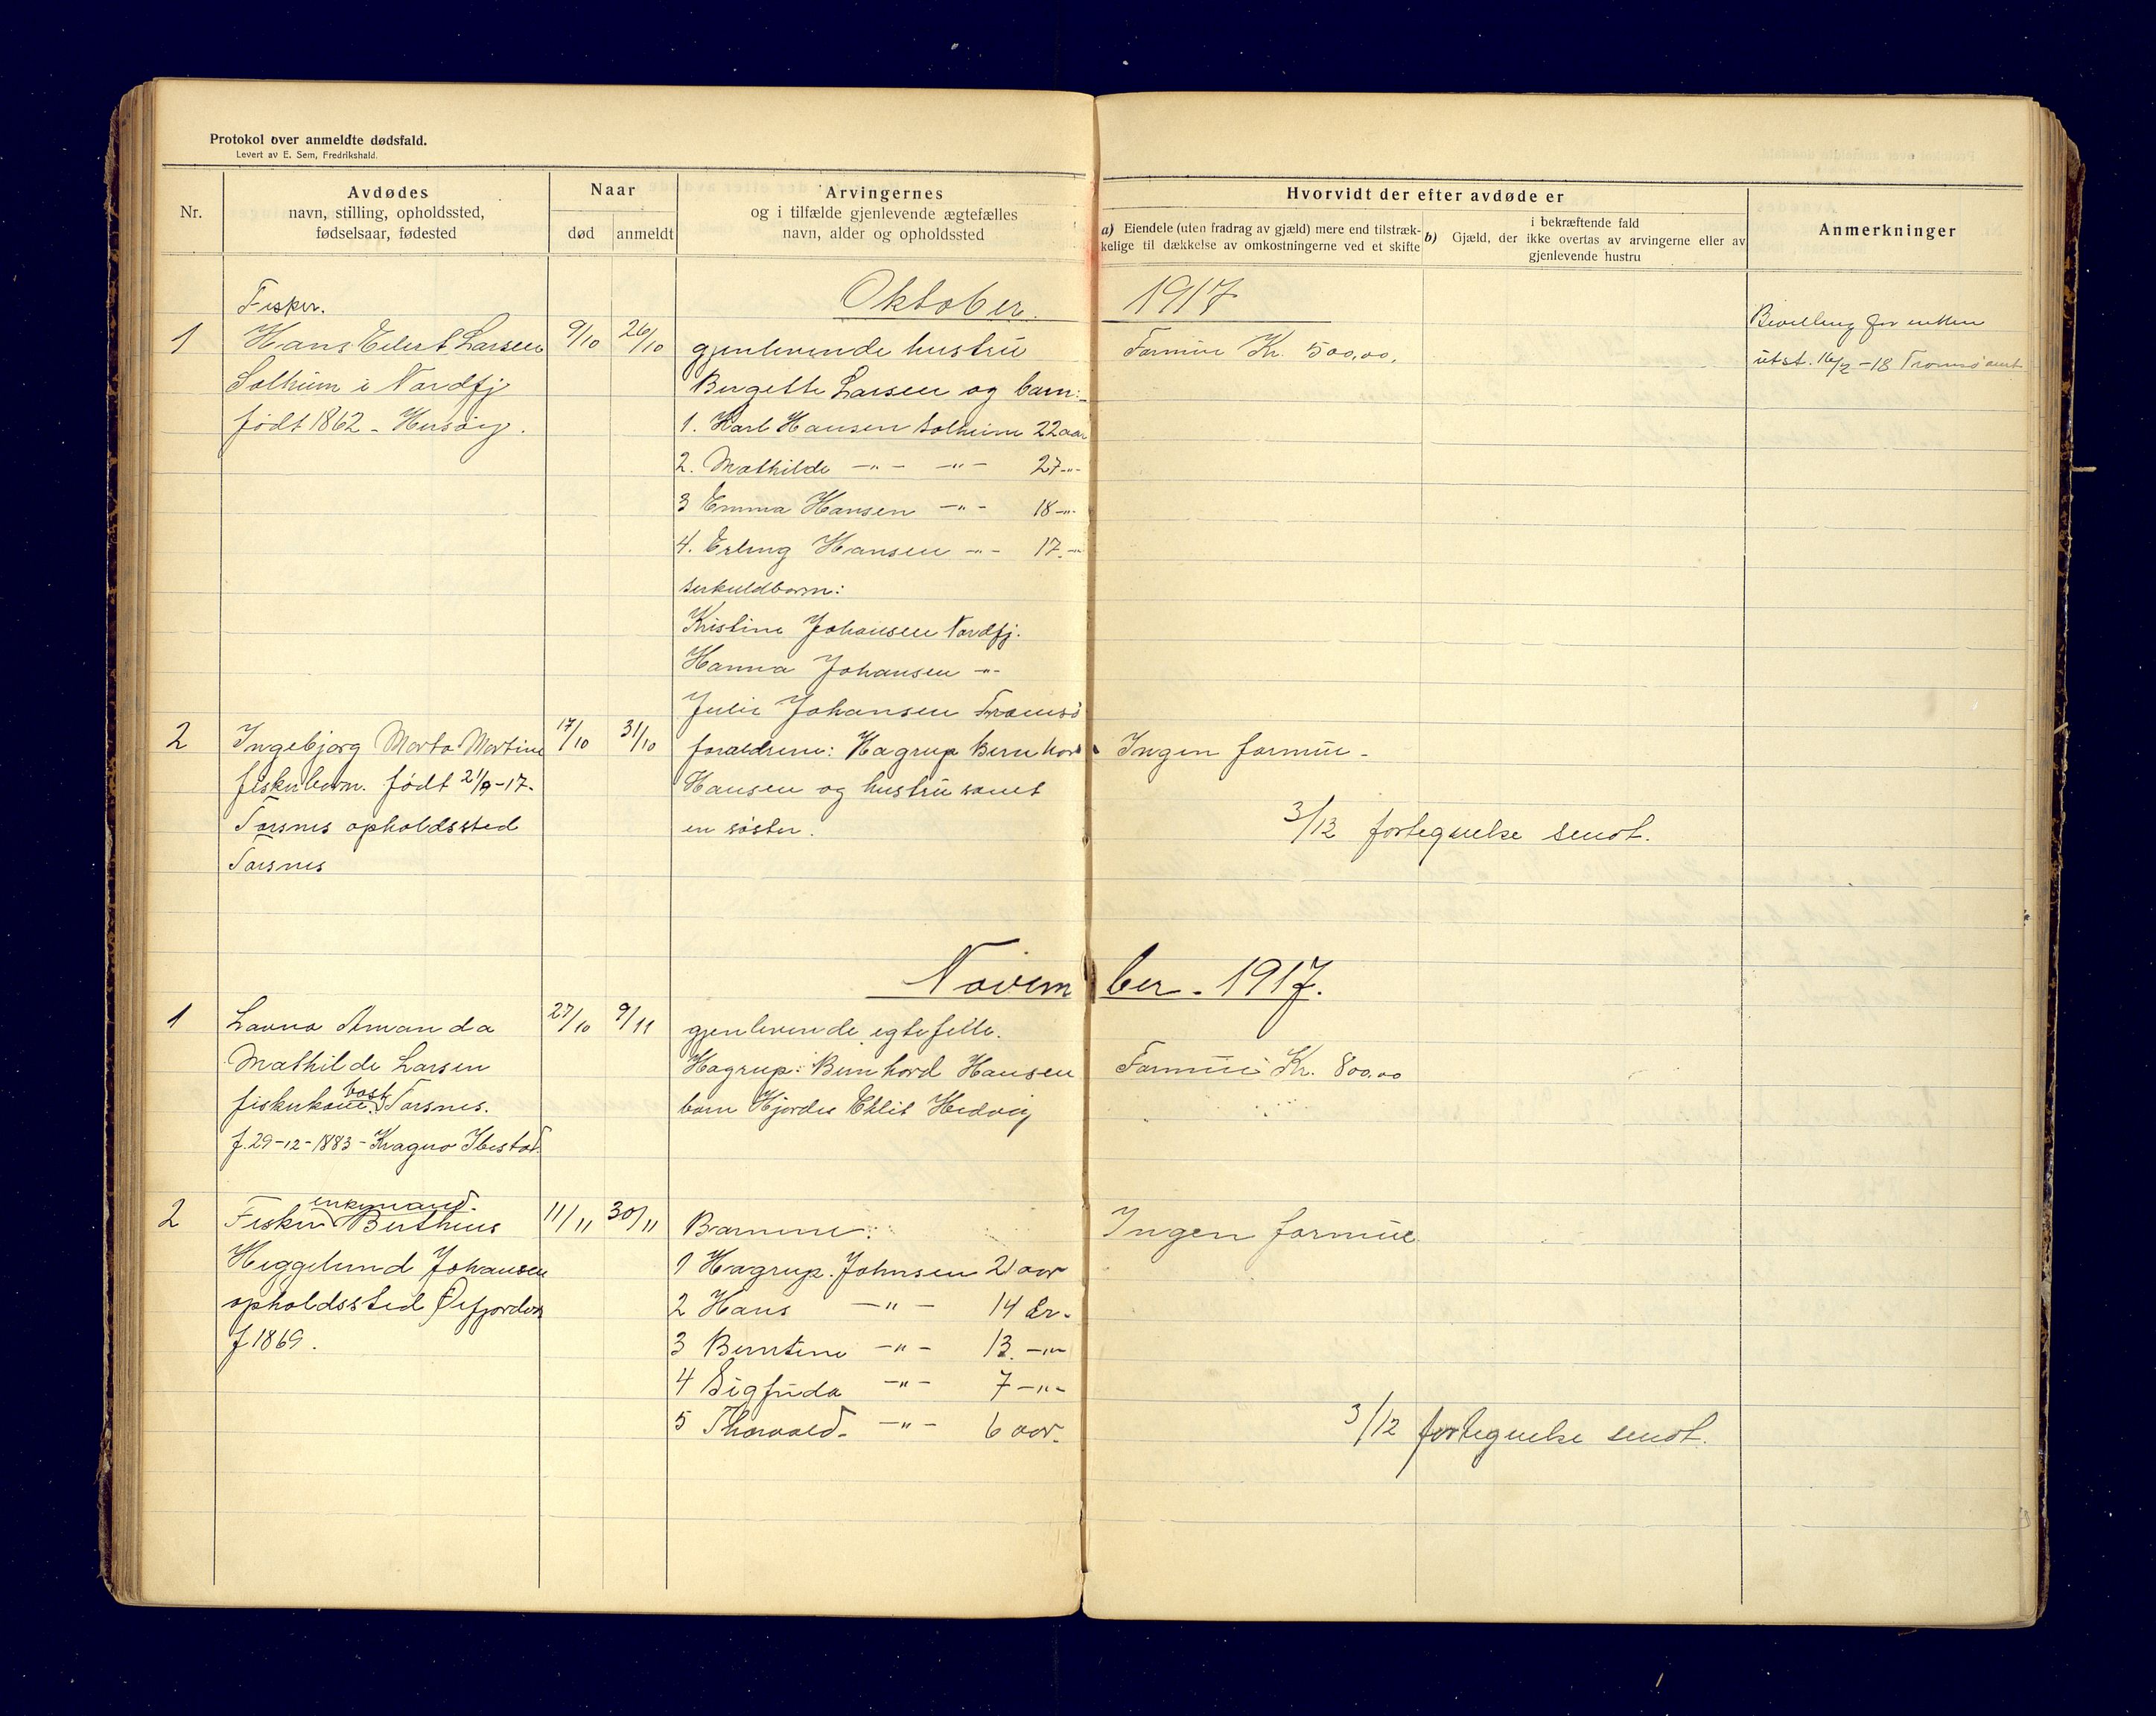 Protokol over anmeldte dødsfald.
Levert av E. Sem, Fredrikshald.
Nr.
Avdødes
navn, stilling, opholdssted,
fødselsaar, fødested
Naar
død
anmeldt
Arvingernes
og i tilfælde gjenlevende ægtefælles
navn, alder og opholdssted
Hvorvidt der efter avdøde er
a) Eiendele (uten fradrag av gjæld) mere end tilstræk-
kelige til dækkelse av omkostningerne ved et skifte
i bekræftende fald
b) Gjæld, der ikke overtas av arvingerne eller av
gjenlevende hustru
Anmerkninger
Oktober 1917
1
Fisker.
Hans Eilert Larsen
Solheim i Nordfj
født 1862 - Husøy.
9/10
26/10
gjenlevende hustru
Bergette Larsen og barn:
1. Karl Hansen Solheim 22 aar
2. Mathilde -"- -"- 27 -"-
3 Emma Hansen -"- 18 -"-
4. Erling Hansen -"- 17. -"-
serkuldbarn:
Kristine Johansen Nordfj.
Hanna Johansen -"-
Julie Johansen Tromsø
Formue Kr. 500,00.
Bevilling for enken
utst. 16/2 -18 Tromsø amt
2
Ingebjørg Marta Martine
fiskerbarn. født 21/9-17.
Torsnes opholdssted
Torsnes
17/10
31/10
forældrene: Hagrup Bernhard
Hansen og hustru samt
en søster.
Ingen formue -
3/12 fortegnelse sendt.
November - 1917.
1
Lovna Amanda
Mathilde Larsen
fiskerkone bost. Torsnes.
f. 29-12-1883 - Ibestad.
27/10
9/11
gjenlevende egtefelle.
Hagrup Bernhard Hansen
barn Hjørdis Hedvig
Formue Kr. 800,00
2
enkemand.
Fisker Berthius
Heggelund Johansen
opholdssted
f 1869.
11/11
30/11
Barnene:
1 Hagrup. Johnsen 21 aar
2 Hans -"- 14 år -
3 Berntine -"- 13. -"-
4 Sigfrida -"- 7 -"-
5 Thorvald -"- 6 aar.
Ingen formue
3/12 fortegnelse sendt.